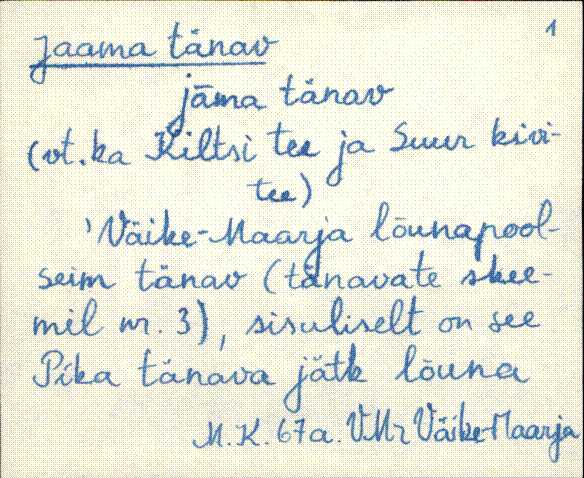 1
Jaama tänav
jāma tänav
(vt. ka Kiltsi tee ja Suur kivi-
tee)
'Väike-Maarja lõunapool-
seim tänav (tänavate skee-
mil nr. 3), sisuliselt on see
Pika tänava jätk lõuna
M.K. 67a. VMr Väike-Maarja